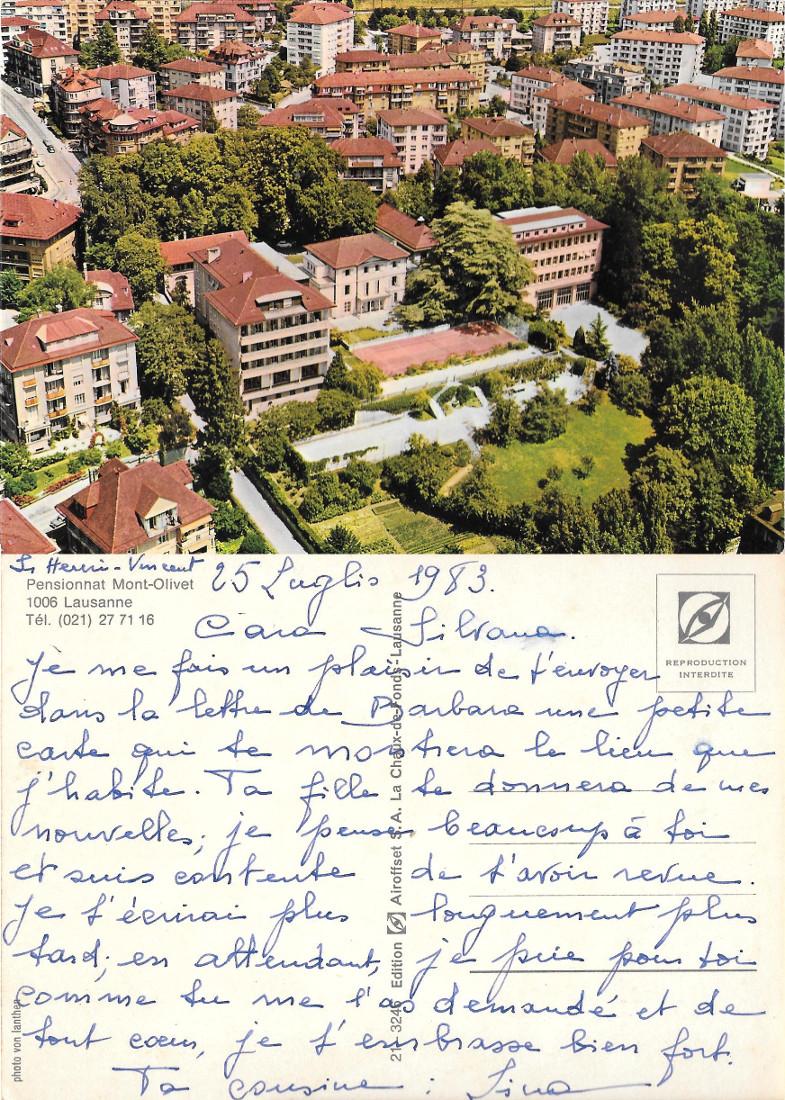 Sr Henri-Vincent
Pensionnat Mont-Olivet
1006 Lausanne
Tél. (021) 27 71 16
25 Luglio 1983.
Cara Silvana.
Je me fais un plaisir de t'envoyer
dans la lettre de Barbara une petite
carte qui te montrera le lieu que
j'habite. Ta fille te donnera de mes
nouvelles; je pense beaucoup à toi
et suis contente de t'avoir revue.
Je t'écrirai plus longuement plus
tard; en attendant, je prie pour toi
comme tu me l'as demandé et de
tout cœur, je t'embrasse bien fort.
Ta cousine : Lina
REPRODUCTION
INTERDITE
21 3246 Edition Airoffset S.A. La Chaux-de-Fonds-Lausanne
photo von Ianthen